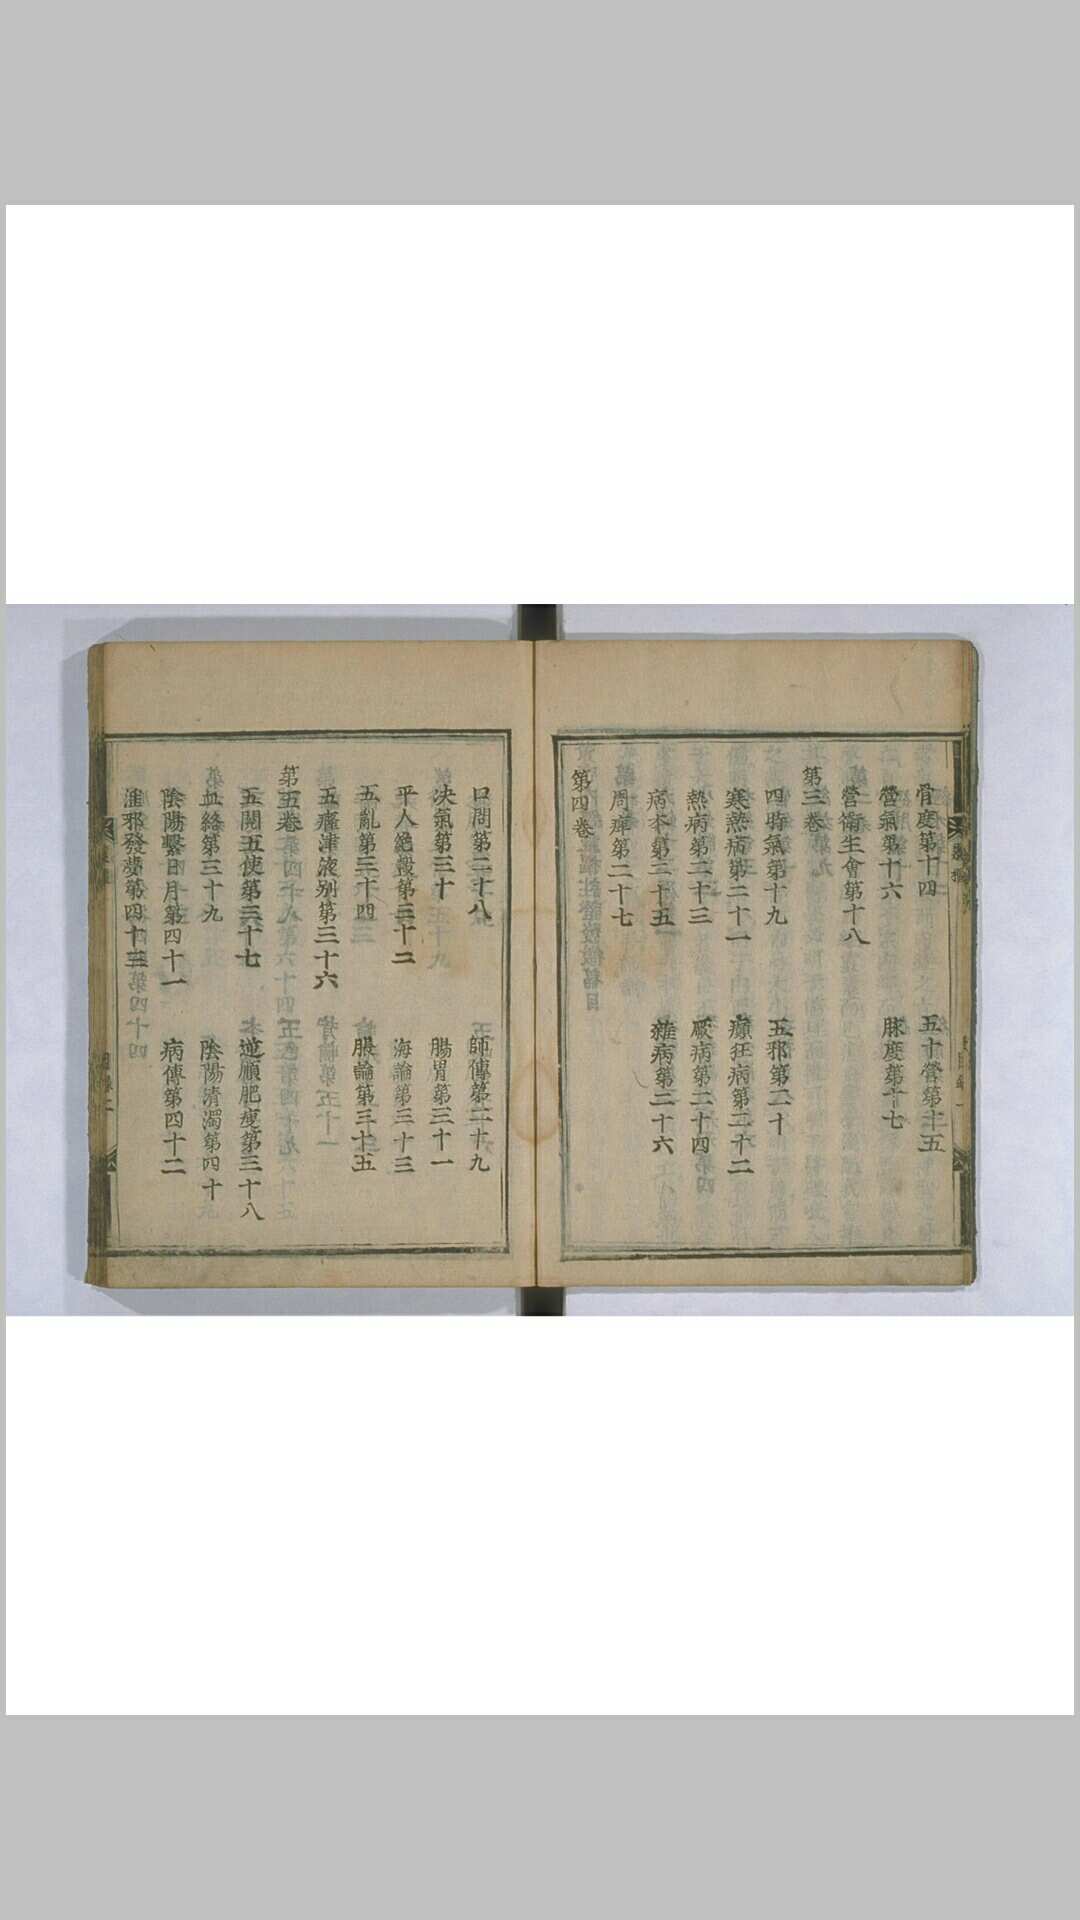 骨度第十四　五十營第十五
營氣第十六　脉度第十七
營衛生會第十八
第三卷
四時氣第十九　五邪第二十
寒熱病第二十一　癲狂病第二十二
熱病第二十三　厥病第二十四
病本第二十五　雜病第二十六
周痺第二十七
第四卷
口問第二十八　師傳第二十九
决氣第三十　腸胃第三十一
平人絕穀第三十二　海論第三十三
五亂第三十四　脹論第三十五
五癃津液别第三十六
第五卷
五閱五使第三十七　逆順肥瘦第三十八
血絡第三十九　陰陽清濁第四十
陰陽繫日月第四十一　病傳第四十二
淫邪發夢第四十三